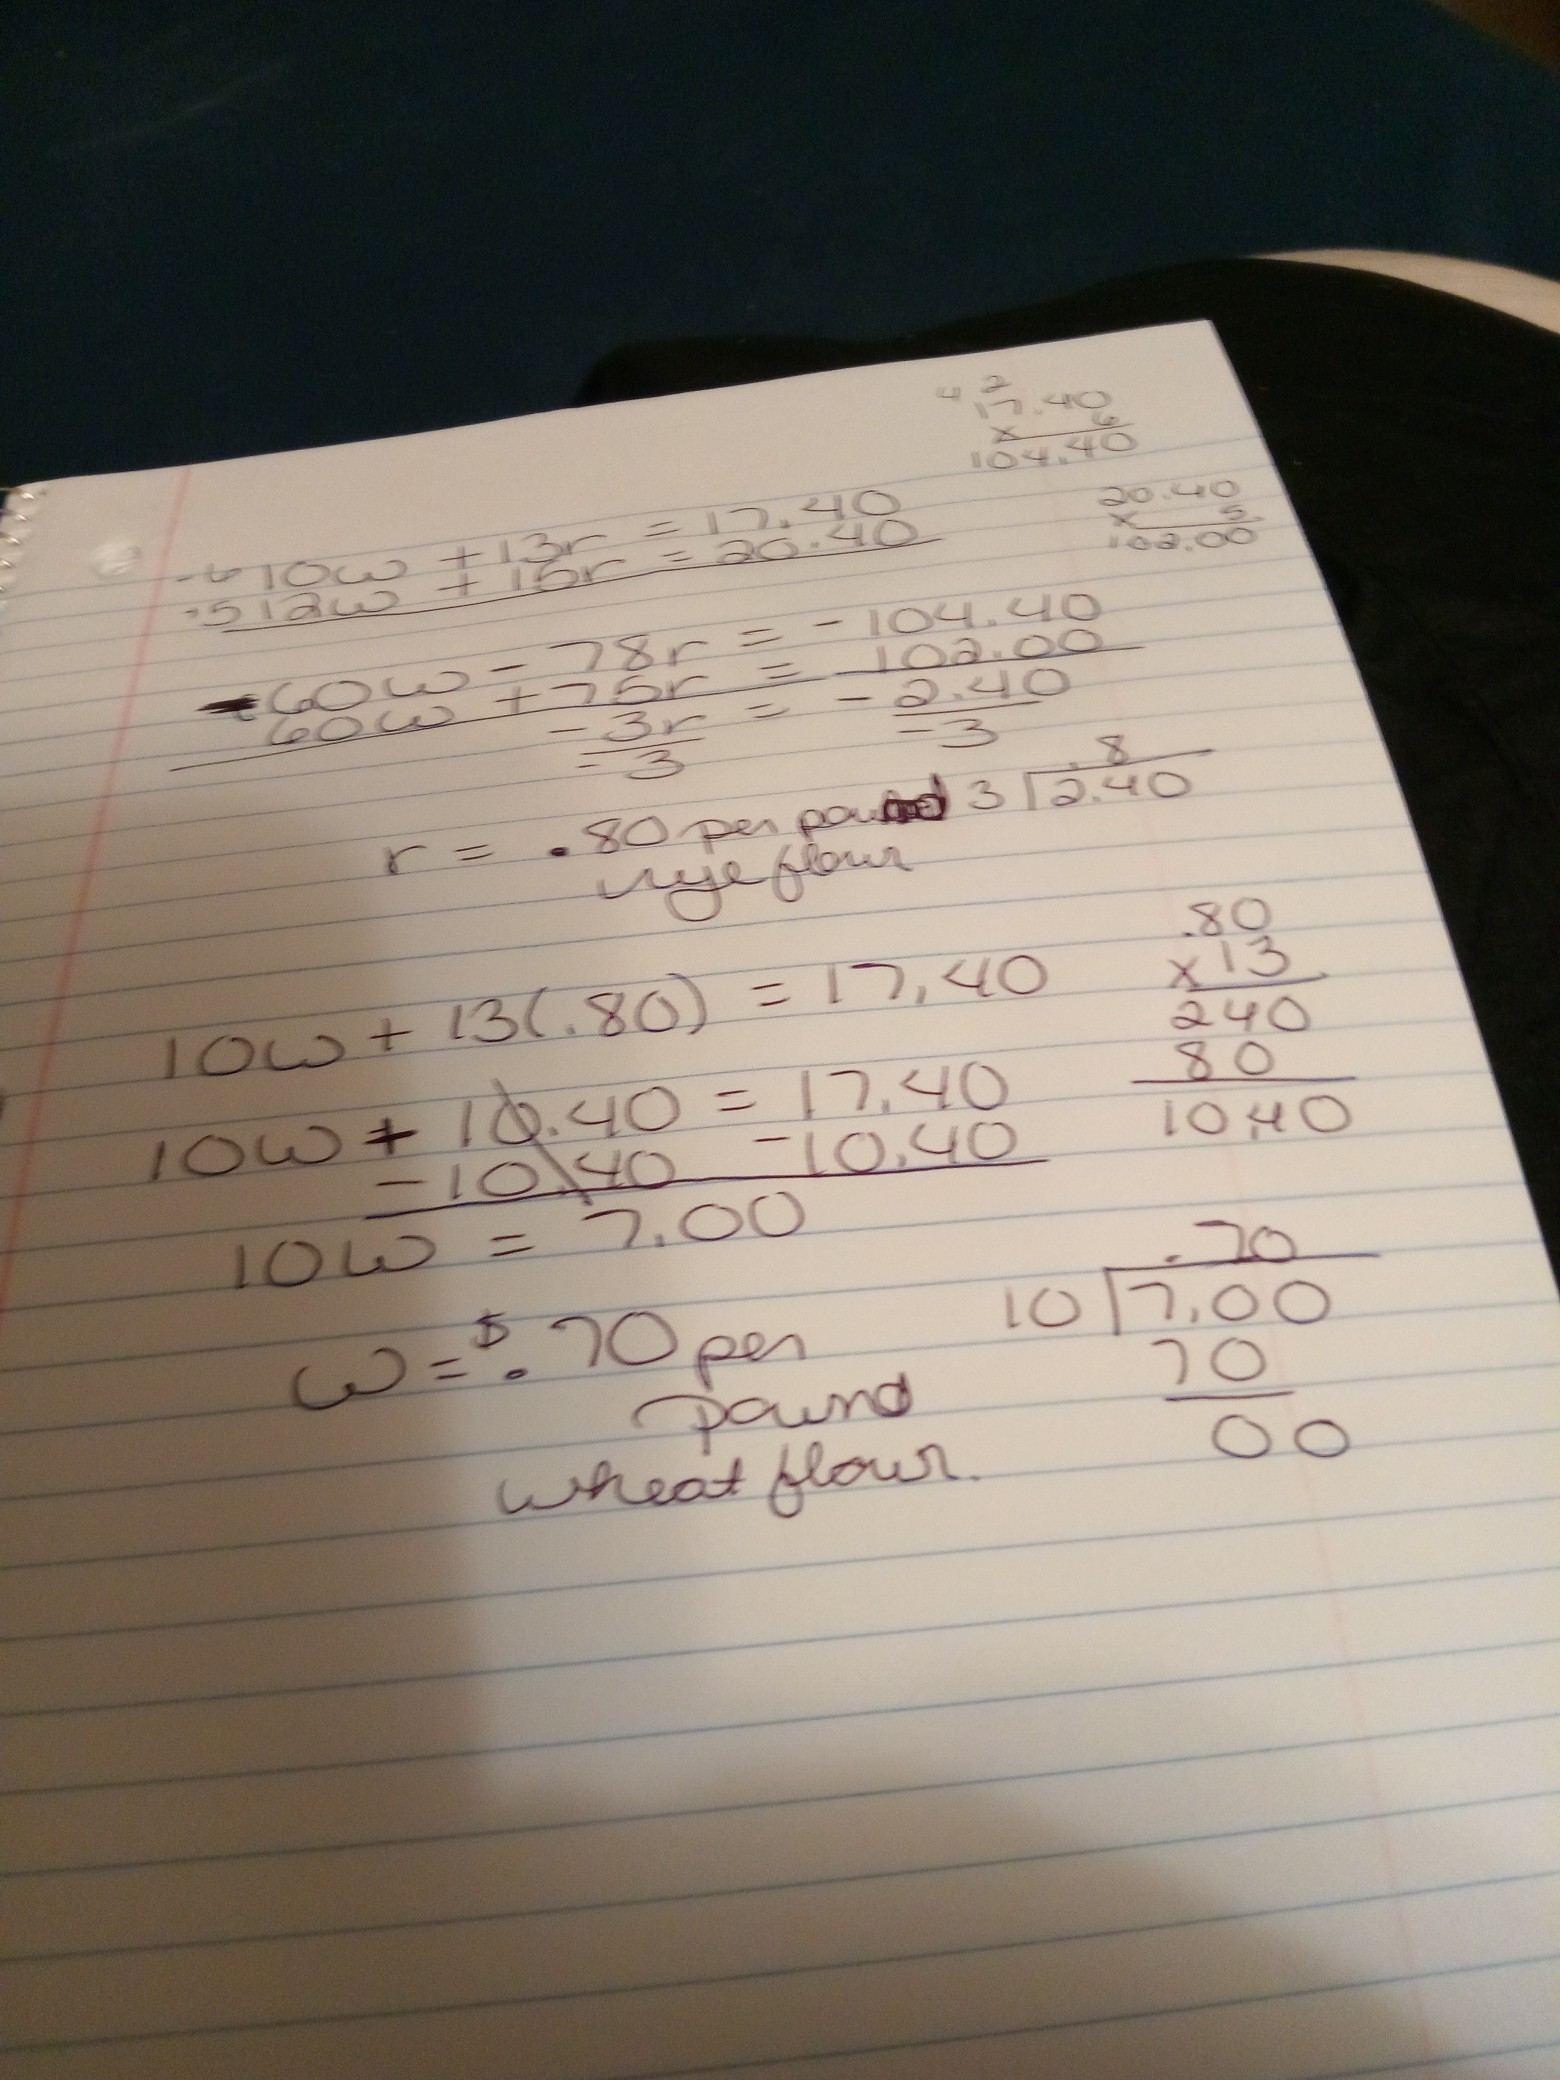 4 2
17.40
x 6
104.40
-6 10w + 13r = 17.40
20.40
x 5
102.00
·5 12w + 15r = 20.40
-60w - 78r = -104.40
60w + 75r = 102.00
-3r = -2.40
-3 -3
.8
r = .80 per pound 3 2.40
rye flour
.80
x 13
240
80
10.40
10w + 13(.80) = 17.40
10w + 10.40 = 17.40
-10.40 -10.40
10w = 7.00
.70
10 7.00
70
00
w = $.70 per
pound
wheat flour.